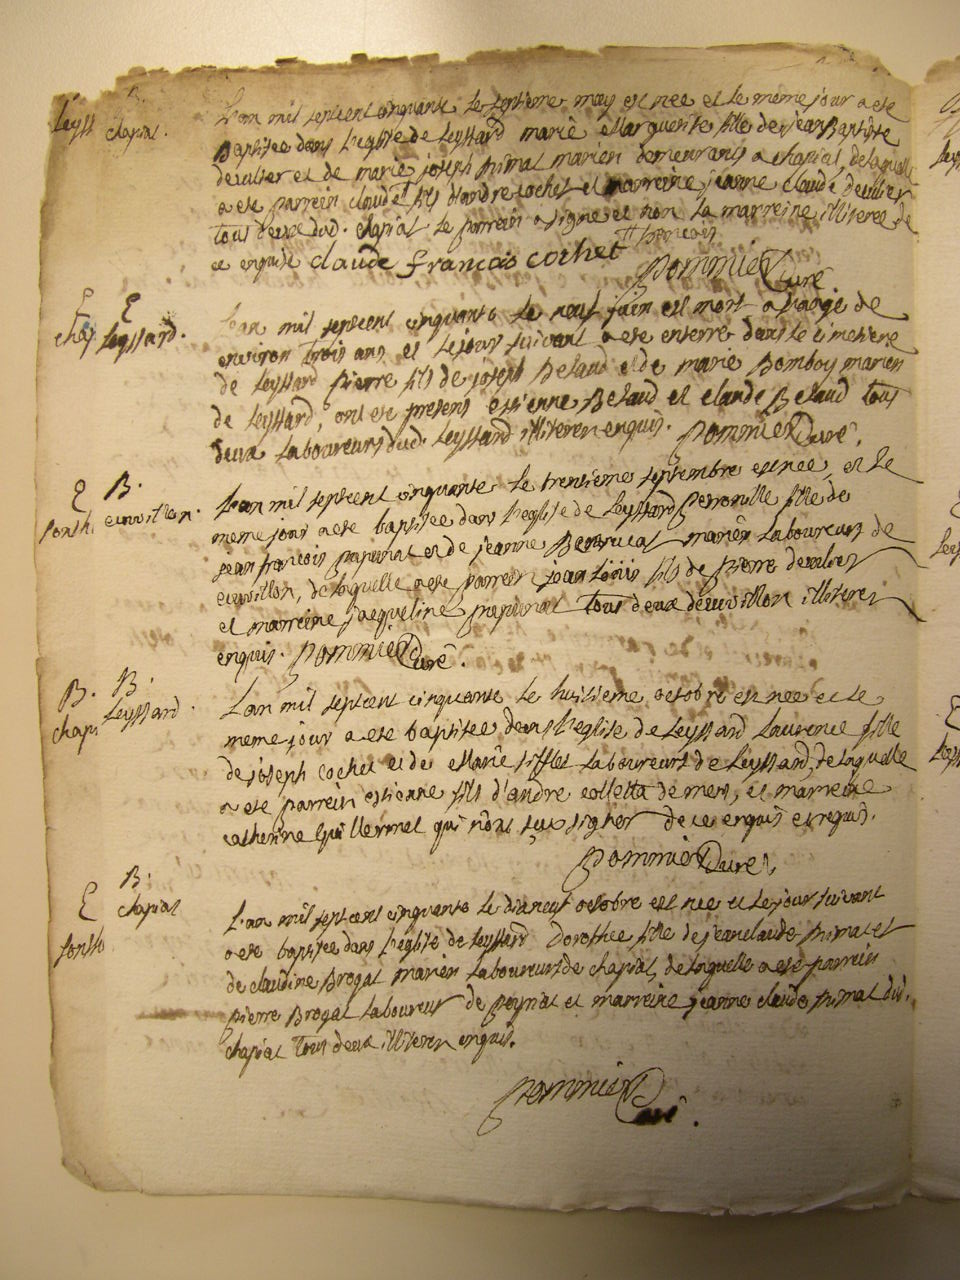 B.
Leyss chapiat.
L'an mil septcent cinquante le septieme may est née et le meme jour a ete
Baptisée dans l'eglise de Leyssard marie Marguerite fille de jean Baptiste
devilier et de marie joseph primat mariés demeurants a chapiat, de laquelle
a ete parrein claude fils d'andre cochet et marreine jeanne claude devilier
tous deux dud. chapiat le parrein a signé et non la marreine illiterée de
françois
ce enquise claude françois cochet
Pommier Curé
E E
chap Leyssard.
L'an mil septcent cinquante le neuf juin est mort a l'aage de
environ trois ans et le jour suivant a ete enterré dans le cimetiere
de Leyssard pierre fils de joseph Belaud et de marie Bomboy mariés
de Leyssard, ont ete presens estienne Belaud et claude Belaud tous
deux Laboureurs dud. Leyssard illiteres enquis. Pommier Curé.
E B.
Lonth
L'an mil septcent cinquante le trentieme septembre est née, et le
meme jour a ete baptisée dans l'eglise de Leyssard Peronille fille de
jean françois et de jeanne mariés Laboureurs de
de laquelle a ete parrein jean Loüis fils de pierre devilier
et marreine jacqueline tous deux illiteres
enquis. Pommier Curé.
B. B.
chapi Leyssard
L'an mil septcent cinquante le huitieme octobre est née et le
meme jour a ete baptisée dans l'eglise de Leyssard Laurence fille
de joseph cochet et de Marie sifflet Laboureurs de Leyssard, de laquelle
a ete parrein estienne fils d'andre colletta de mens, et marreine
catherine Guillermet qui n'ont sçu signer de ce enquis et requis.
Pommier Curé
B.
E chapiat
Lonth
L'an mil septcent cinquante le dixneuf octobre est née et le jour suivant
a ete baptisée dans l'eglise de Leyssard Dorothée fille de jean claude primat et
de claudine Brogat mariés Laboureurs de chapiat, de laquelle a ete parrein
pierre Brogat Laboureur de peyriat et marreine jeanne claude primat dud.
chapiat tous deux illiteres enquis.
Pommier
Curé.